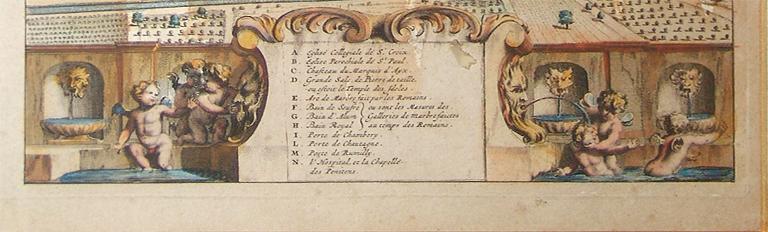 A Eglise Collegiale de S. Croix.
B. Eglise Parochiale de St. Paul.
C. Chasteau du Marquis d'Ayx.
D Grande Sale de Pierre de taille.
ou estoit le Temple des Idoles.
E. Arc de Marbre fait par les Romains.
F. Bain de Soufre ou sont les Masures des
G. Bain d'Alum Galleries de marbre faictes
H. Bain Royal au temps des Romains.
I. Porte de Chambery.
L. Porte de Chautagne.
M. Porte de Rumilly.
N. l'Hospital, et la Chapelle
des Penitens.